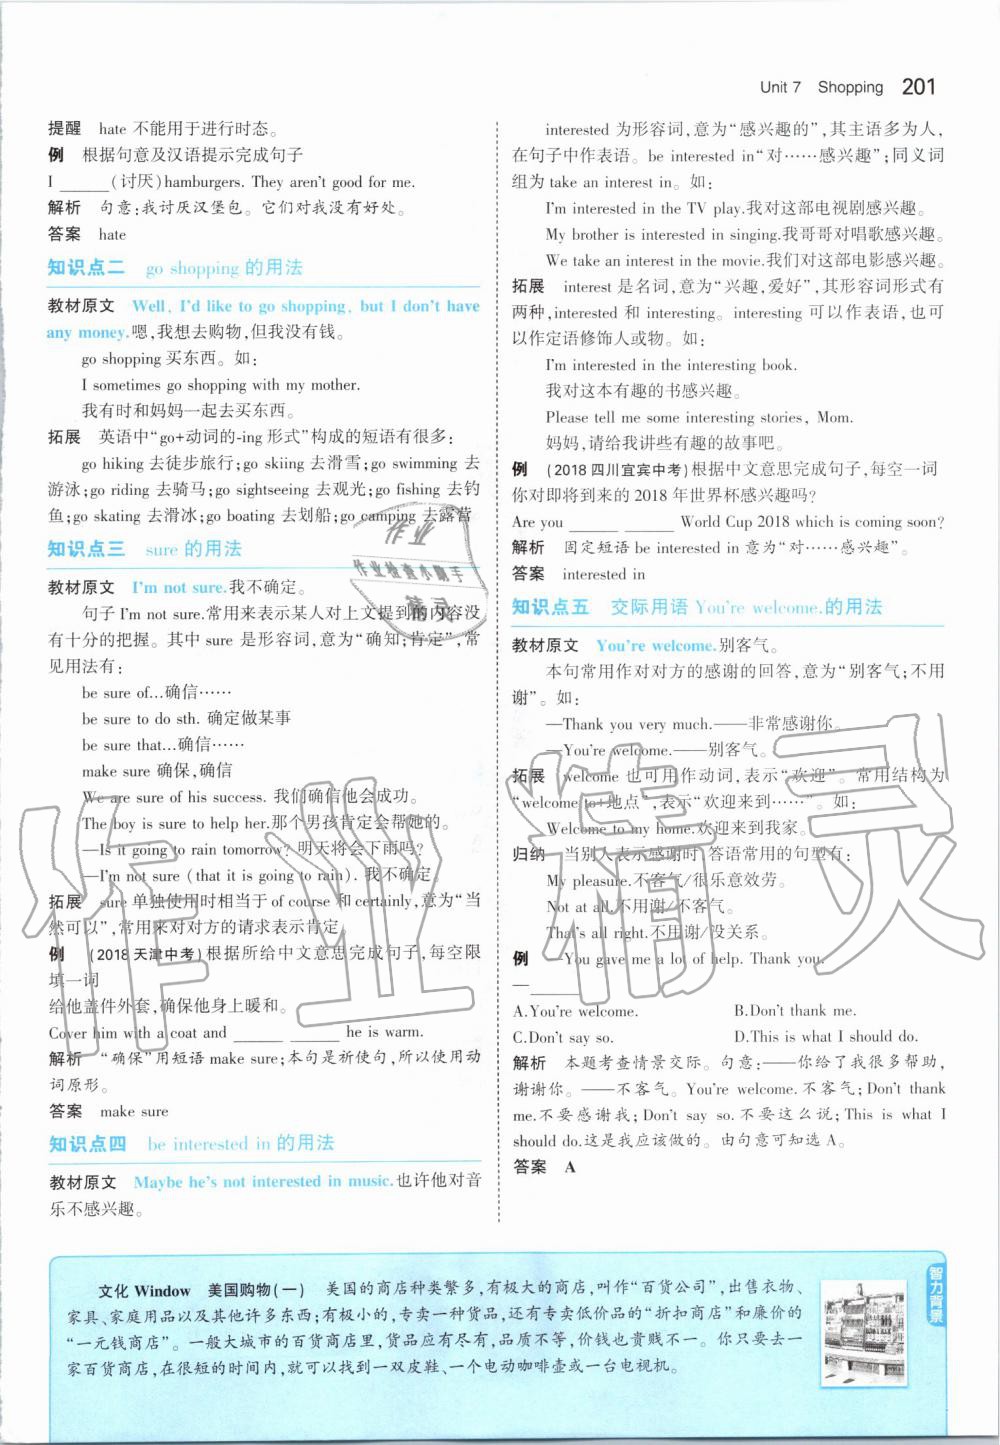 Unit 7 Shopping 201
提醒 hate 不能用于进行时态。
例 根据句意及汉语提示完成句子
I ______(讨厌)hamburgers. They aren't good for me.
解析 句意:我讨厌汉堡包。它们对我没有好处。
答案 hate
知识点二 go shopping 的用法
教材原文 Well, I'd like to go shopping, but I don't have
any money.嗯,我想去购物,但我没有钱。
go shopping 买东西。如:
I sometimes go shopping with my mother.
我有时和妈妈一起去买东西。
拓展 英语中“go+动词的-ing 形式”构成的短语有很多:
go hiking 去徒步旅行;go skiing 去滑雪;go swimming 去
游泳;go riding 去骑马;go sightseeing 去观光;go fishing 去钓
鱼;go skating 去滑冰;go boating 去划船;go camping 去露营
知识点三 sure 的用法
教材原文 I'm not sure.我不确定。
句子 I'm not sure.常用来表示某人对上文提到的内容没
有十分的把握。其中 sure 是形容词,意为“确知;肯定”,常
见用法有:
be sure of...确信……
be sure to do sth. 确定做某事
be sure that...确信……
make sure 确保,确信
We are sure of his success. 我们确信他会成功。
The boy is sure to help her.那个男孩肯定会帮她的。
—Is it going to rain tomorrow? 明天将会下雨吗?
—I'm not sure (that it is going to rain). 我不确定。
拓展 sure 单独使用时相当于 of course 和 certainly,意为“当
然可以”,常用来对对方的请求表示肯定。
例 (2018 天津中考)根据所给中文意思完成句子,每空限
填一词
给他盖件外套,确保他身上暖和。
Cover him with a coat and ______ ______ he is warm.
解析 “确保”用短语 make sure;本句是祈使句,所以使用动
词原形。
答案 make sure
知识点四 be interested in 的用法
教材原文 Maybe he's not interested in music.也许他对音
乐不感兴趣。
interested 为形容词,意为“感兴趣的”,其主语多为人,
在句子中作表语。be interested in“对……感兴趣”;同义词
组为 take an interest in。如:
I'm interested in the TV play.我对这部电视剧感兴趣。
My brother is interested in singing.我哥哥对唱歌感兴趣。
We take an interest in the movie.我们对这部电影感兴趣。
拓展 interest 是名词,意为“兴趣,爱好”,其形容词形式有
两种,interested 和 interesting。interesting 可以作表语,也可
以作定语修饰人或物。如:
I'm interested in the interesting book.
我对这本有趣的书感兴趣。
Please tell me some interesting stories, Mom.
妈妈,请给我讲些有趣的故事吧。
例 (2018 四川宜宾中考)根据中文意思完成句子,每空一词
你对即将到来的 2018 年世界杯感兴趣吗?
Are you ______ ______ World Cup 2018 which is coming soon?
解析 固定短语 be interested in 意为“对……感兴趣”。
答案 interested in
知识点五 交际用语 You're welcome.的用法
教材原文 You're welcome.别客气。
本句常用作对对方的感谢的回答,意为“别客气;不用
谢”。如:
—Thank you very much.——非常感谢你。
—You're welcome.——别客气。
拓展 welcome 也可用作动词,表示“欢迎”。常用结构为
“welcome to+地点”,表示“欢迎来到……”。如:
Welcome to my home.欢迎来到我家。
归纳 当别人表示感谢时,答语常用的句型有:
My pleasure.不客气/很乐意效劳。
Not at all.不用谢/不客气。
That's all right.不用谢/没关系。
例 —You gave me a lot of help. Thank you.
—______
A.You're welcome. B.Don't thank me.
C.Don't say so. D.This is what I should do.
解析 本题考查情景交际。句意:——你给了我很多帮助,
谢谢你。——不客气。You're welcome.不客气;Don't thank
me.不要感谢我;Don't say so.不要这么说;This is what I
should do.这是我应该做的。由句意可知选 A。
答案 A
文化 Window 美国购物(一) 美国的商店种类繁多,有极大的商店,叫作“百货公司”,出售衣物、
家具、家庭用品以及其他许多东西;有极小的,专卖一种货品,还有专卖低价品的“折扣商店”和廉价的
“一元钱商店”。一般大城市的百货商店里,货品应有尽有,品质不等,价钱也贵贱不一。你只要去一
家百货商店,在很短的时间内,就可以找到一双皮鞋、一个电动咖啡壶或一台电视机。
智力背景
作业
作业检查小助手
精灵
作业精灵